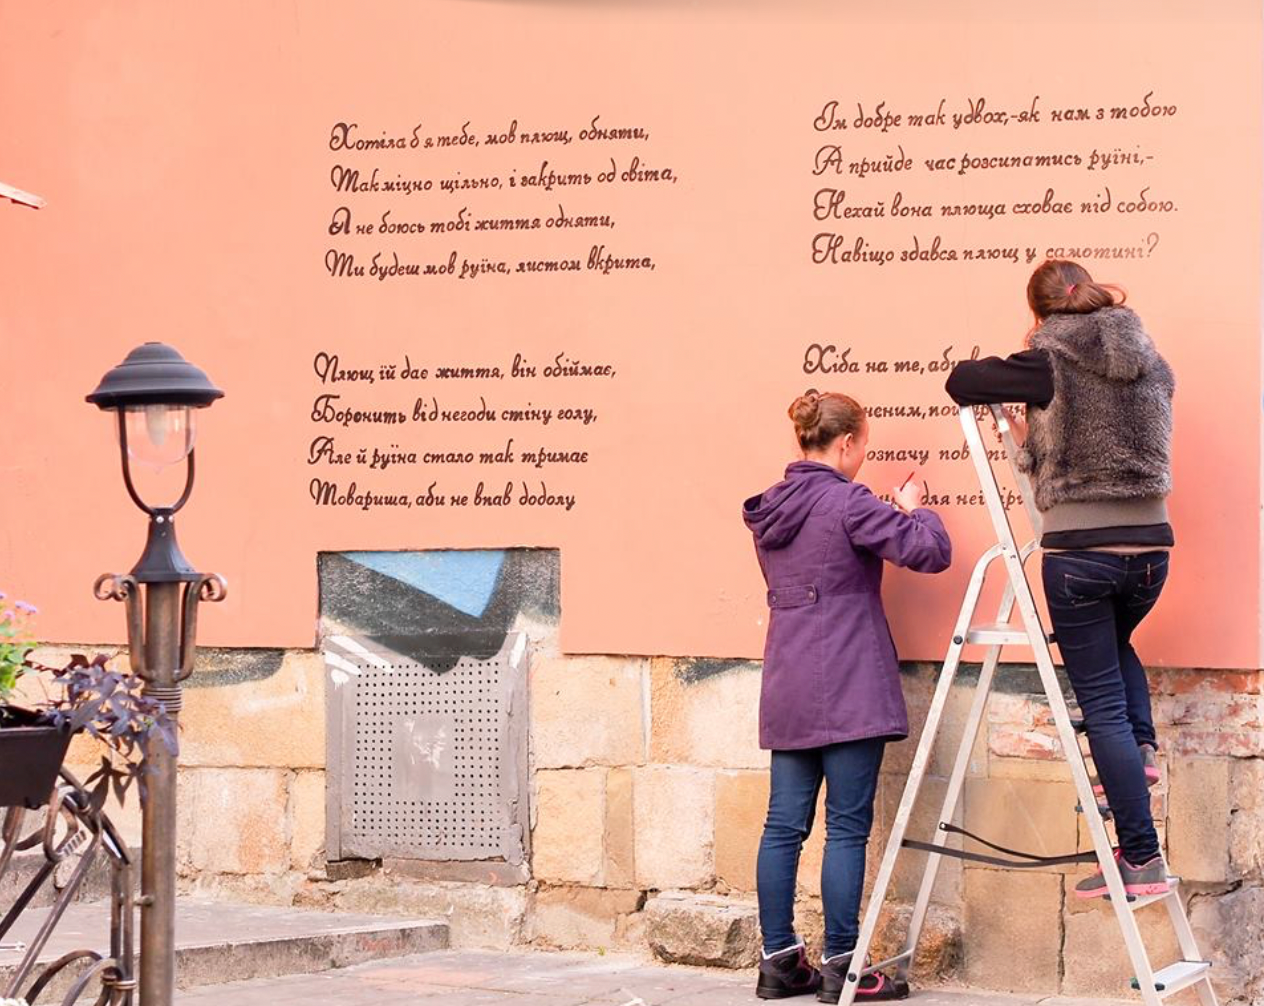 Хотіла б я тебе, мов плющ, обняти,
Так міцно щільно, і закрить од світа,
Я не боюсь тобі життя одняти,
Ти будеш мов руїна, листом вкрита,
Плющ їй дає життя, він обіймає,
Боронить від негоди стіну голу,
Але й руїна стало так тримає
Товариша, аби не впав додолу
Їм добре так удвох,-як нам з тобою
А прийде час розсипатись руїні,-
Нехай вона плюща сховає під собою.
Навіщо здався плющ у самотині?
Хіба на те, аби
для неї